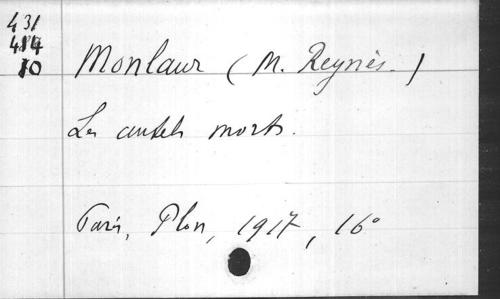 431
414
10
Monlaur (M. Reynès.)
Les autels morts.
Paris, Plon, 1917, 16°